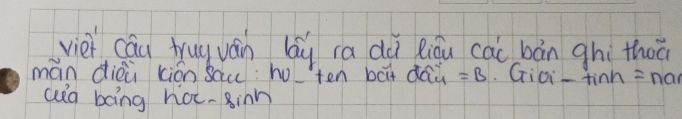 viết câu truy vấn lấy ra dữ liệu các bản ghi thoả
mãn điều kiện sau: ho_ten bắt đầu = B. Giơi_tinh = nam
của bảng hoc-sinh